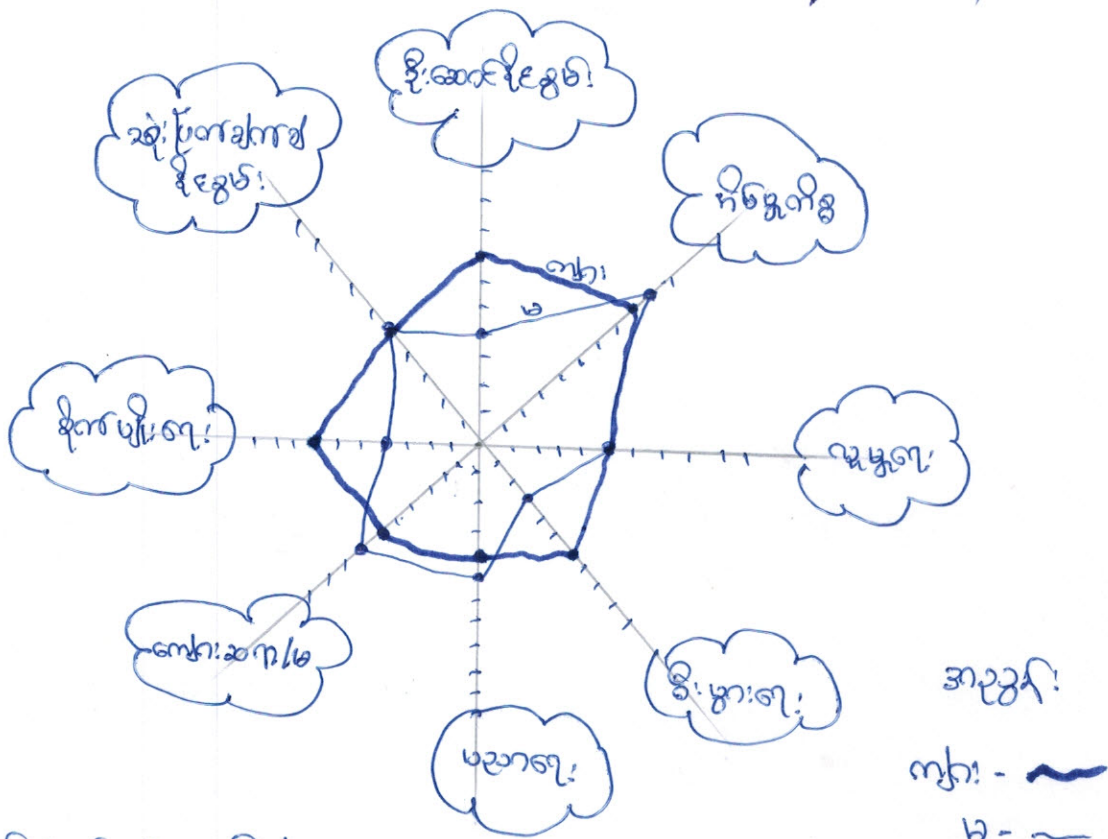 ဦးဆောင်နိုင်စွမ်း
ဆုံးဖြတ်ချက်ချ
နိုင်စွမ်း
အိမ်မှုကိစ္စ
ကျား
မ
စိုက်ပျိုးရေး
လူမှုရေး
ကျောင်းဆရာ/မ
စီးပွားရေး
ပညာရေး
အညွှန်း
ကျား -
မ -